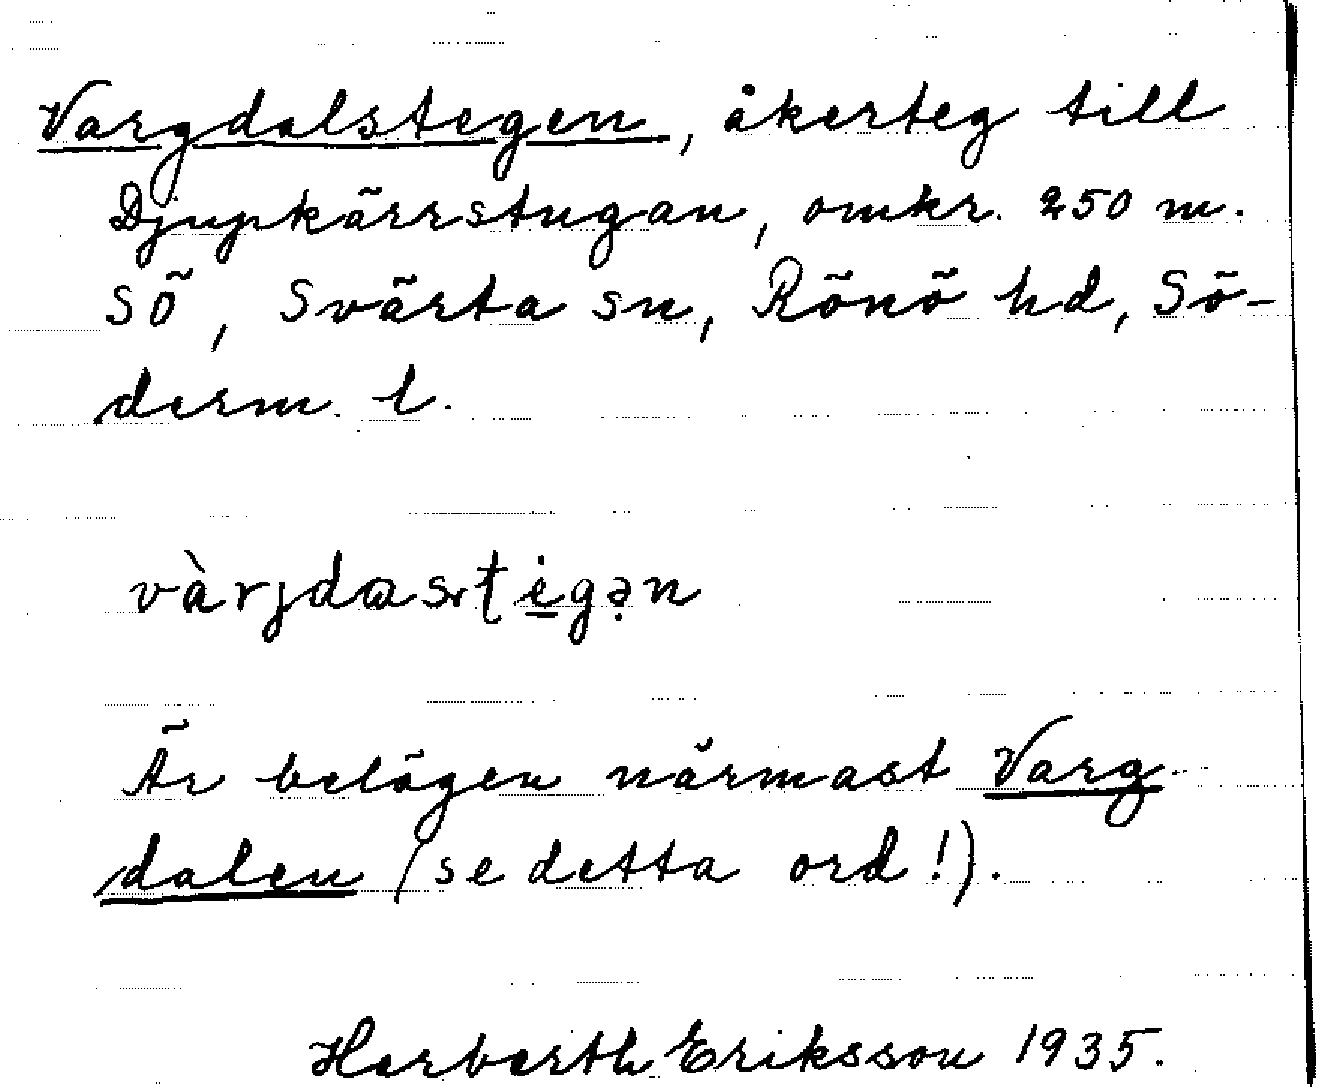 Vargdalstegen, åkerteg till
Djupkärrstugan, omkr. 250 m.
SÖ, Svärta sn, Rönö hd, Sö-
derm. l.
Är belägen närmast Varg
dalen (se detta ord!).
Herberth Eriksson 1935.